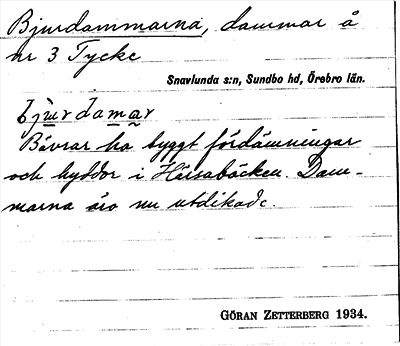 Bjurdammarna, dammar å
nr 3 Tycke
Snavlunda s:n, Sundbo hd, Örebro län.
bjurdamar
Bävrar ha byggt fördämningar
och hyddor i Hörsabäcken. Dam-
marna äro nu utdikade.
GÖRAN ZETTERBERG 1934.